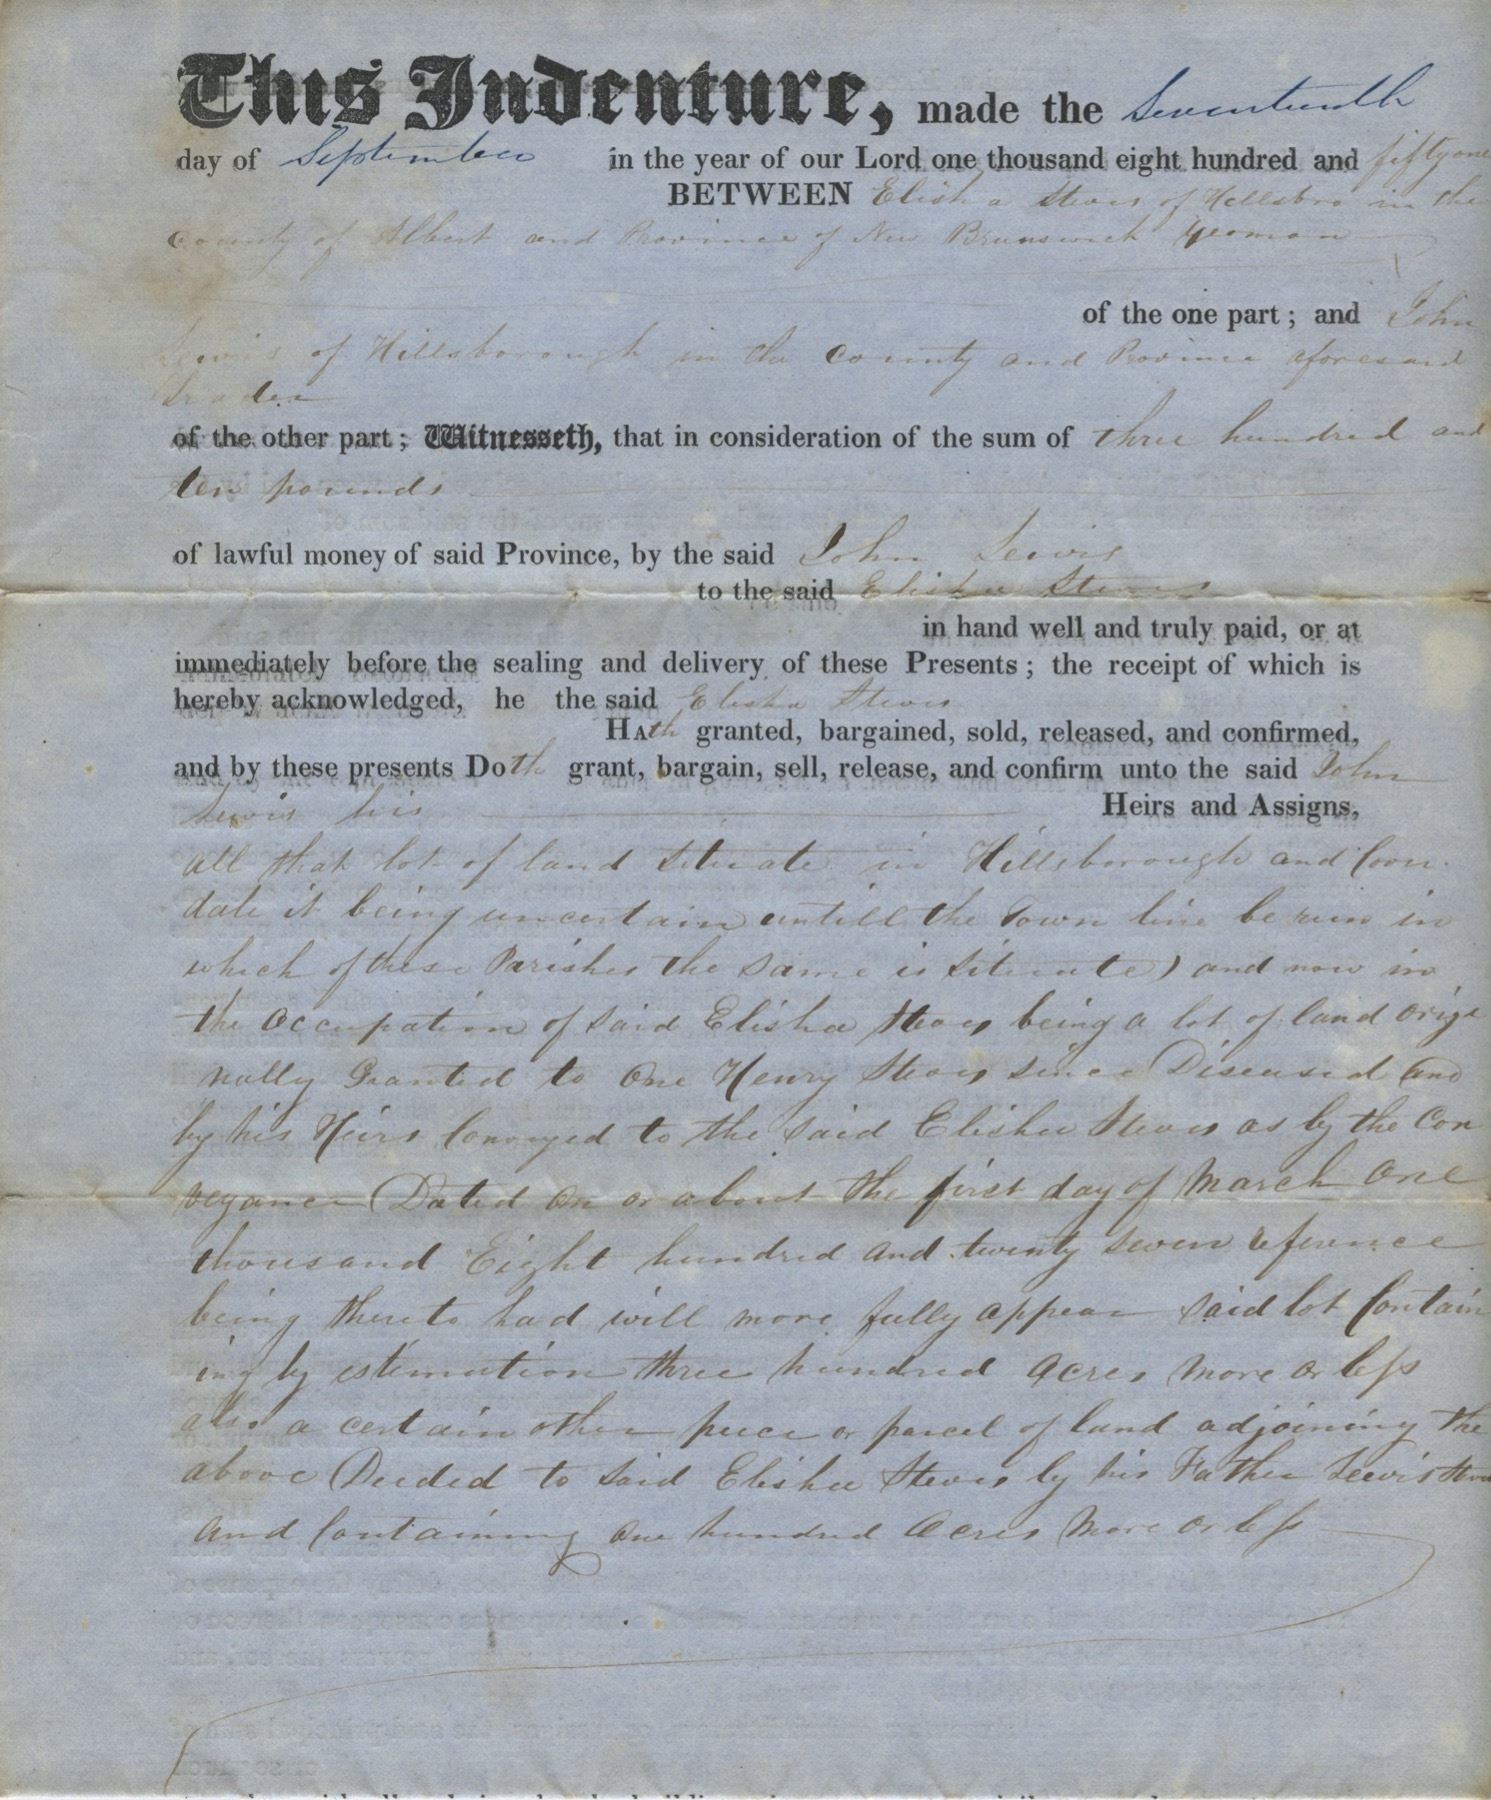 This Indenture, made the Seventeenth
day of September in the year of our Lord one thousand eight hundred and fifty one
BETWEEN Elisha Steves of Hillsbro in the
County of Albert and Province of New Brunswick Yeoman
of the one part; and John
Lewis of Hillsborough in the County and Province aforesaid
Trader
of the other part; Witnesseth, that in consideration of the sum of three hundred and
ten pounds
of lawful money of said Province, by the said John Lewis
to the said Elisha Steves
in hand well and truly paid, or at
immediately before the sealing and delivery of these Presents; the receipt of which is
hereby acknowledged, he the said Elisha Steves
HAth granted, bargained, sold, released, and confirmed,
and by these presents Doth grant, bargain, sell, release, and confirm unto the said John
Lewis his Heirs and Assigns,
all that lot of land situate in Hillsborough and Coverdale
it being uncertain untill the Town line be run in
which of these Parishes the same is situate) and now in
the occupation of said Elisha Steves being a lot of land origi
nally Granted to one Henry Steves since Diseased and
by his Heirs Conveyed to the said Elisha Steves as by the Con
veyance Dated on or about the first day of March one
thousand Eight hundred and twenty seven reference
being thereto had will more fully appear said lot Contain
ing by estimation three hundred acres more or less
also a certain other peece or parcel of land adjoining the
above Deeded to said Elisha Steves by his Father Lewis Steves
and Containing one hundred acres more or less